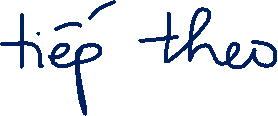 tiếp theo